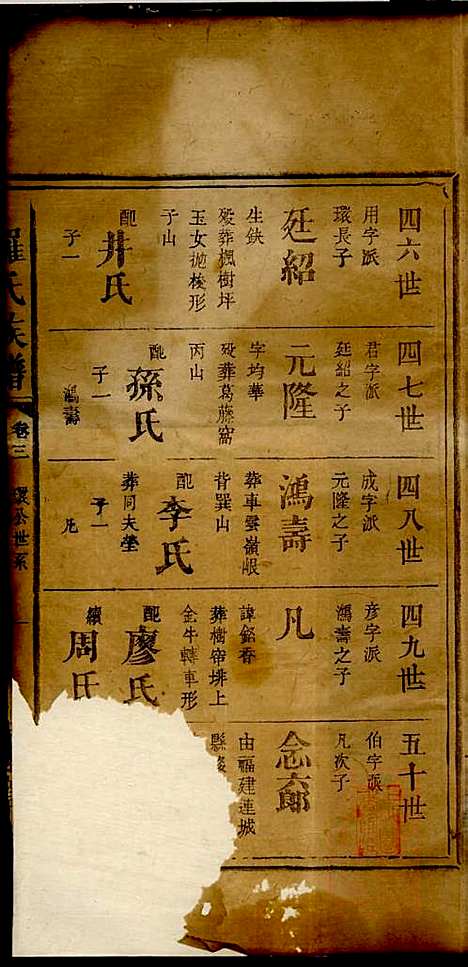 四六世
用字派
環長子
廷紹
生缺
歿葬楓樹坪
玉女拋梭形
子山
配
井氏
子一
四七世
君字派
廷紹之子
元隆
字均華
歿葬葛藤窩
丙山
配
孫氏
子一
鴻壽
四八世
成字派
元隆之子
鴻壽
葬車雲嶺岷
背巽山
配
李氏
葬同夫塋
子一
凡
四九世
彥字派
鴻壽之子
凡
諱銘香
葬樹帘埽上
金牛轉車形
配
廖氏
續
周氏
五十世
伯字派
凡次子
念六郎
由福建連城
縣
羅氏族譜
卷三
環公世系
一